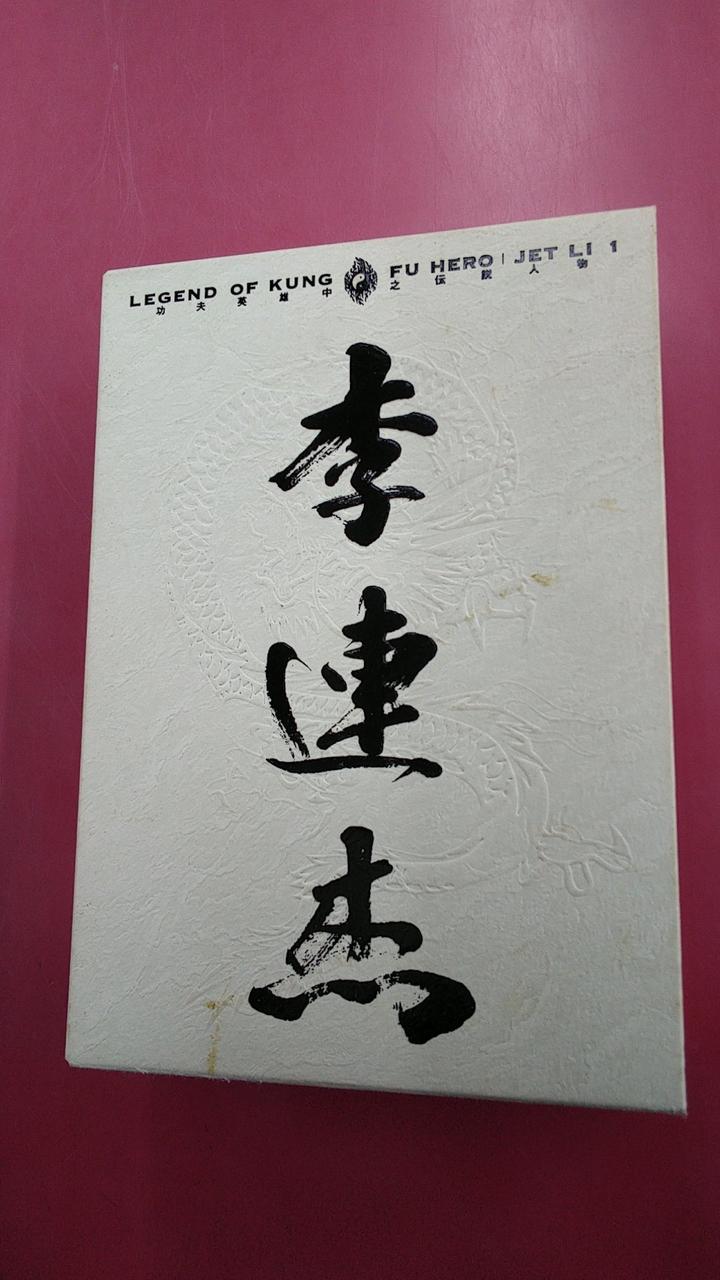 LEGEND OF KUNG FU HERO | JET LI 1
功夫英雄中之伝説人物
李連杰